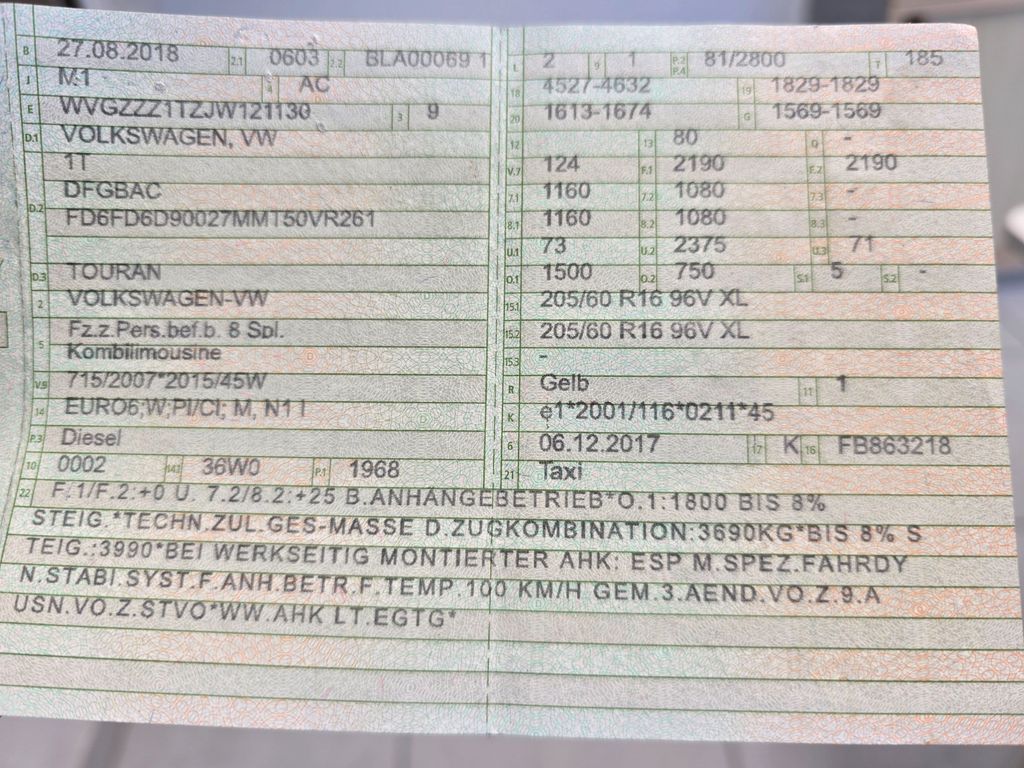 B 27.08.2018 2.1 0603 2.2 BLA00069 1
J M1 4 AC
E WVGZZZ1TZJW121130 3 9
D.1 VOLKSWAGEN, VW
1T
D.2 DFGBAC
FD6FD6D90027MMT50VR261
D.3 TOURAN
2 VOLKSWAGEN-VW
5 Fz.z.Pers.bef.b. 8 Spl.
Kombilimousine
V.9 715/2007*2015/45W
14 EURO6;W;PI/CI; M, N1 I
P.3 Diesel
10 0002 14.1 36W0 P.1 1968
L 2 9 1 P.2 P.4 81/2800 T 185
18 4527-4632 19 1829-1829
20 1613-1674 G 1569-1569
12 13 80 Q -
V.7 124 F.1 2190 F.2 2190
7.1 1160 7.2 1080 7.3 -
8.1 1160 8.2 1080 8.3 -
U.1 73 U.2 2375 U.3 71
O.1 1500 O.2 750 S.1 5 S.2 -
15.1 205/60 R16 96V XL
15.2 205/60 R16 96V XL
15.3 -
R Gelb 11 1
K e1*2001/116*0211*45
6 06.12.2017 17 K 16 FB863218
21 Taxi
22 F.1/F.2:+0 U. 7.2/8.2:+25 B.ANHÄNGEBETRIEB*O.1:1800 BIS 8%
STEIG.*TECHN.ZUL.GES-MASSE D.ZUGKOMBINATION:3690KG*BIS 8% S
TEIG.:3990*BEI WERKSEITIG MONTIERTER AHK: ESP M.SPEZ.FAHRDY
N.STABI.SYST.F.ANH.BETR.F.TEMP.100 KM/H GEM.3.AEND.VO.Z.9.A
USN.VO.Z.STVO*WW.AHK LT.EGTG*